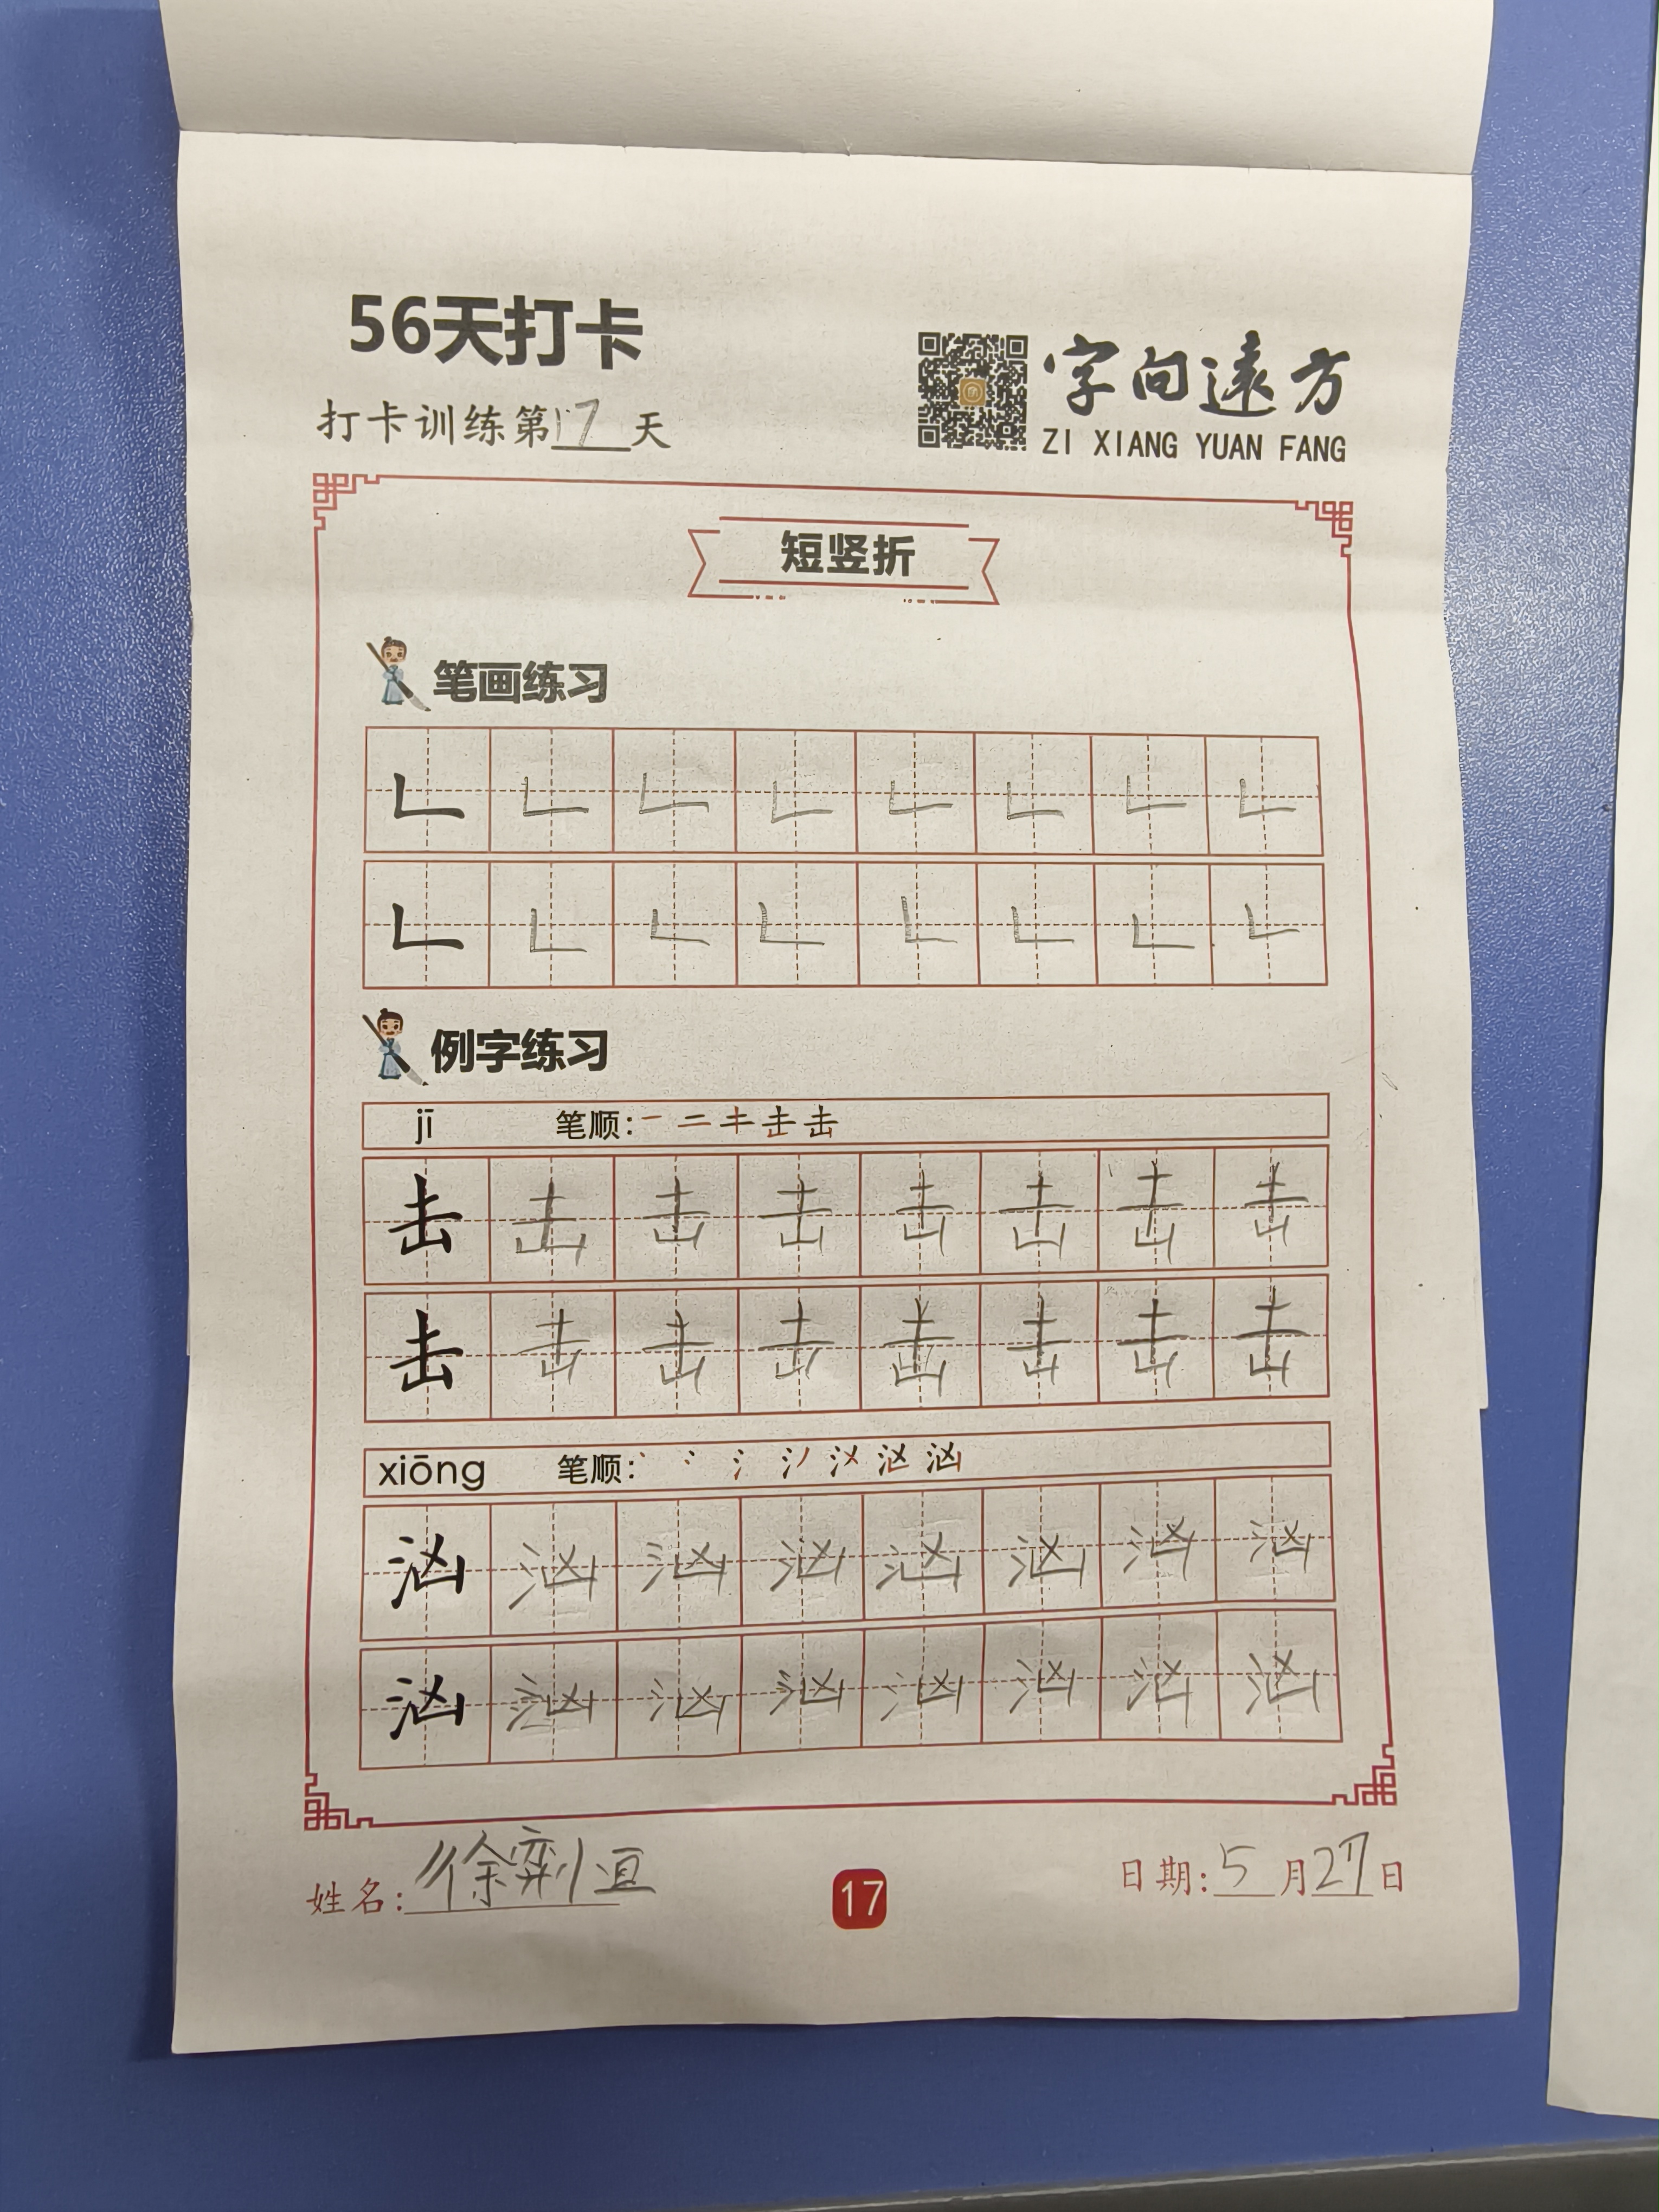 56天打卡
打卡训练第17天
字向遠方
ZI XIANG YUAN FANG
短竖折
笔画练习
𠃊 𠃊 𠃊 𠃊 𠃊 𠃊 𠃊 𠃊
𠃊 𠃊 𠃊 𠃊 𠃊 𠃊 𠃊 𠃊
例字练习
jī 笔顺:一 二 キ 击 击
击 击 击 击 击 击 击 击
击 击 击 击 击 击 击 击
xiōng 笔顺: 汹 汹
汹 汹 汹 汹 汹 汹 汹 汹
汹 汹 汹 汹 汹 汹 汹 汹
姓名:徐
17
日期:5月27日